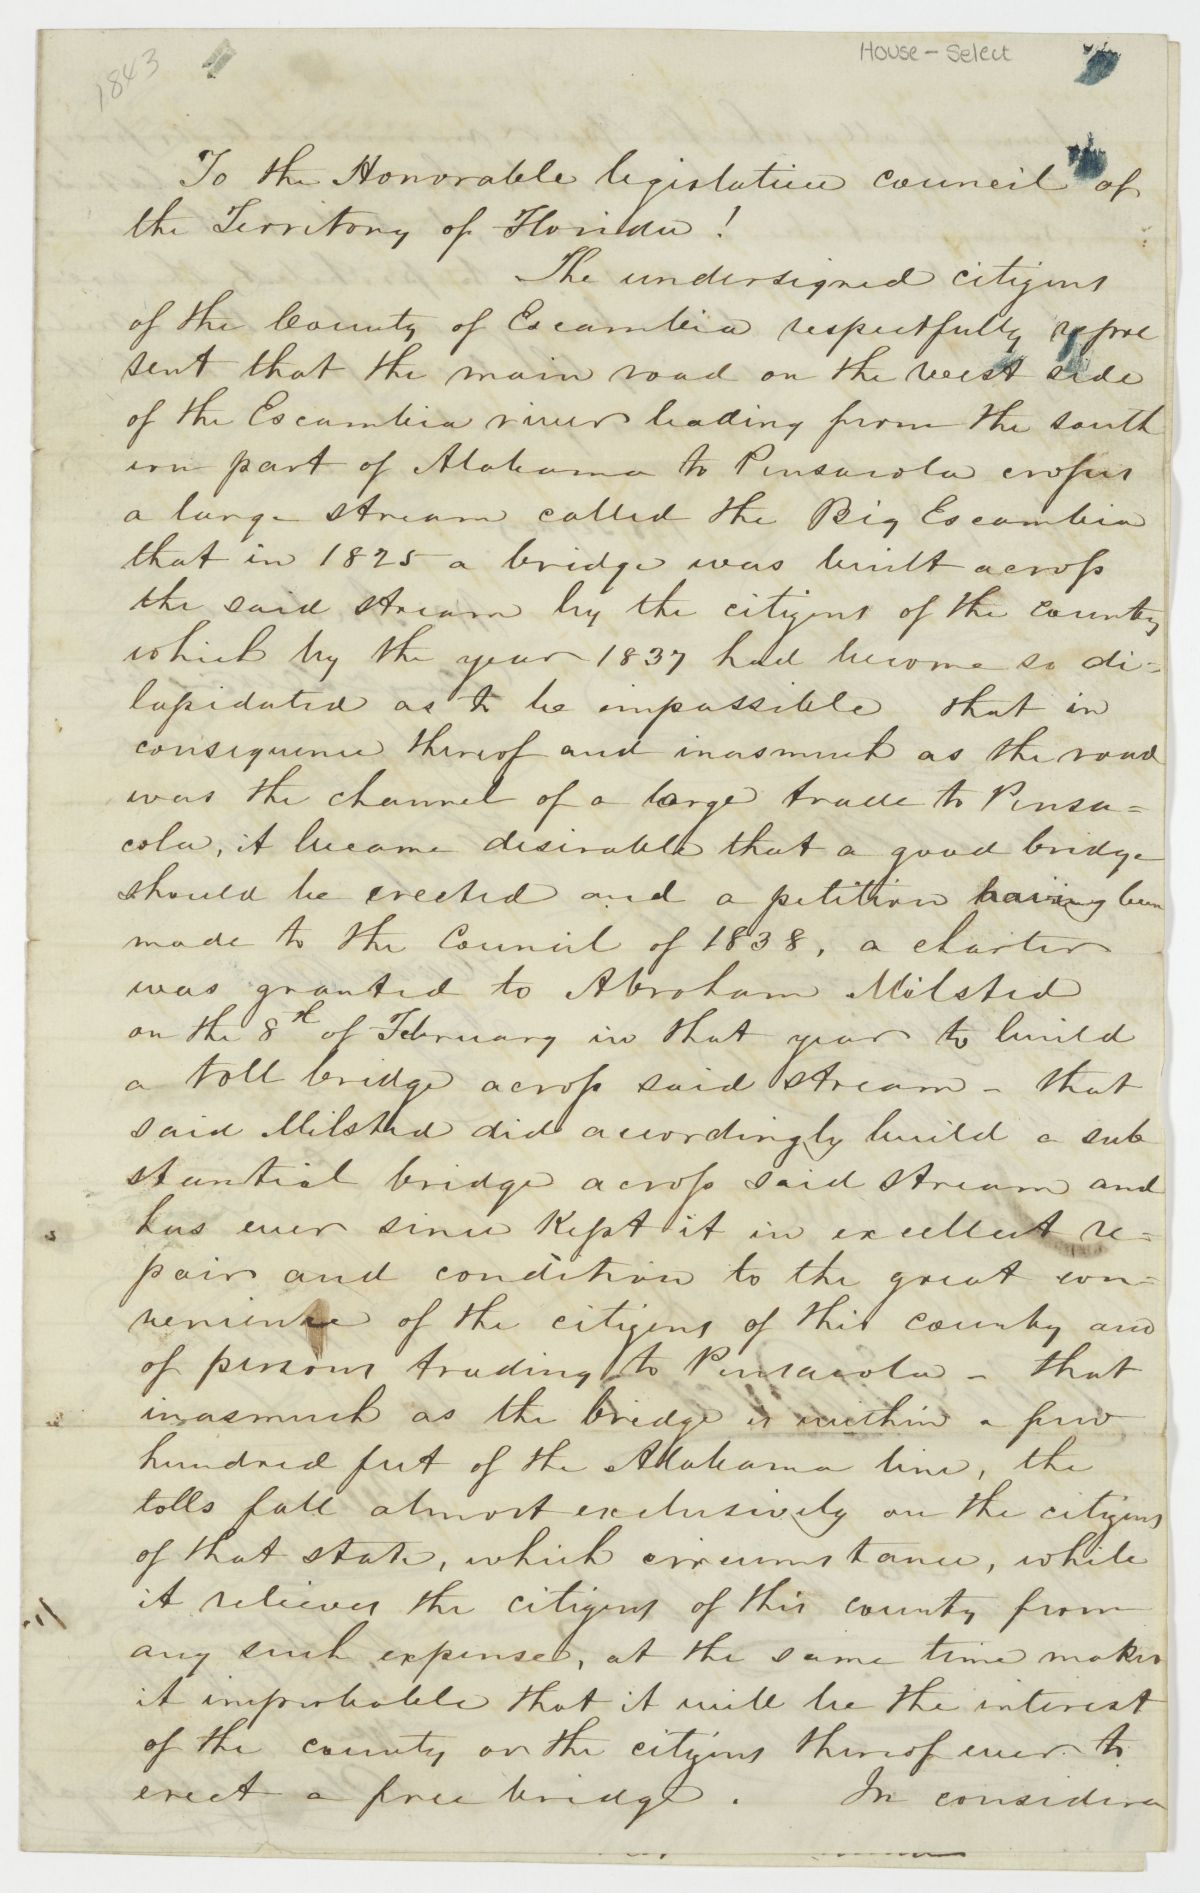 1843
House - Select
To the Honorable legislative council of
the Territory of Florida !
The undersigned citizens
of the County of Escambia respectfully repre
sent that the main road on the west side
of the Escambia river leading from the south
ern part of Alabama to Pensacola crosses
a large stream called the Big Escambia
that in 1825 a bridge was built across
the said stream by the citizens of the county
which by the year 1837 had become so di=
lapidated as to be impassible that in
consequence thereof and inasmuch as the road
was the channel of a large trade to Pensa=
cola, it became desirable that a good bridge
should be erected and a petition having been
made to the Council of 1838, a charter
was granted to Abraham Milsted
on the 8th of February in that year to build
a toll bridge across said stream - that
said Milsted did accordingly build a sub
stantial bridge across said stream and
has ever since Kept it in excellent re=
pair and condition to the great con=
venience of the citizens of this county and
of persons trading to Pensacola - that
inasmuch as the bridge is within a few
hundred feet of the Alabama line, the
tolls fall almost exclusively on the citizens
of that state, which circumstance, while
it relieves the citizens of this county from
any such expense, at the same time makes
it improbable that it will be the interest
of the county or the citizens thereof ever to
erect a free bridge . In considera